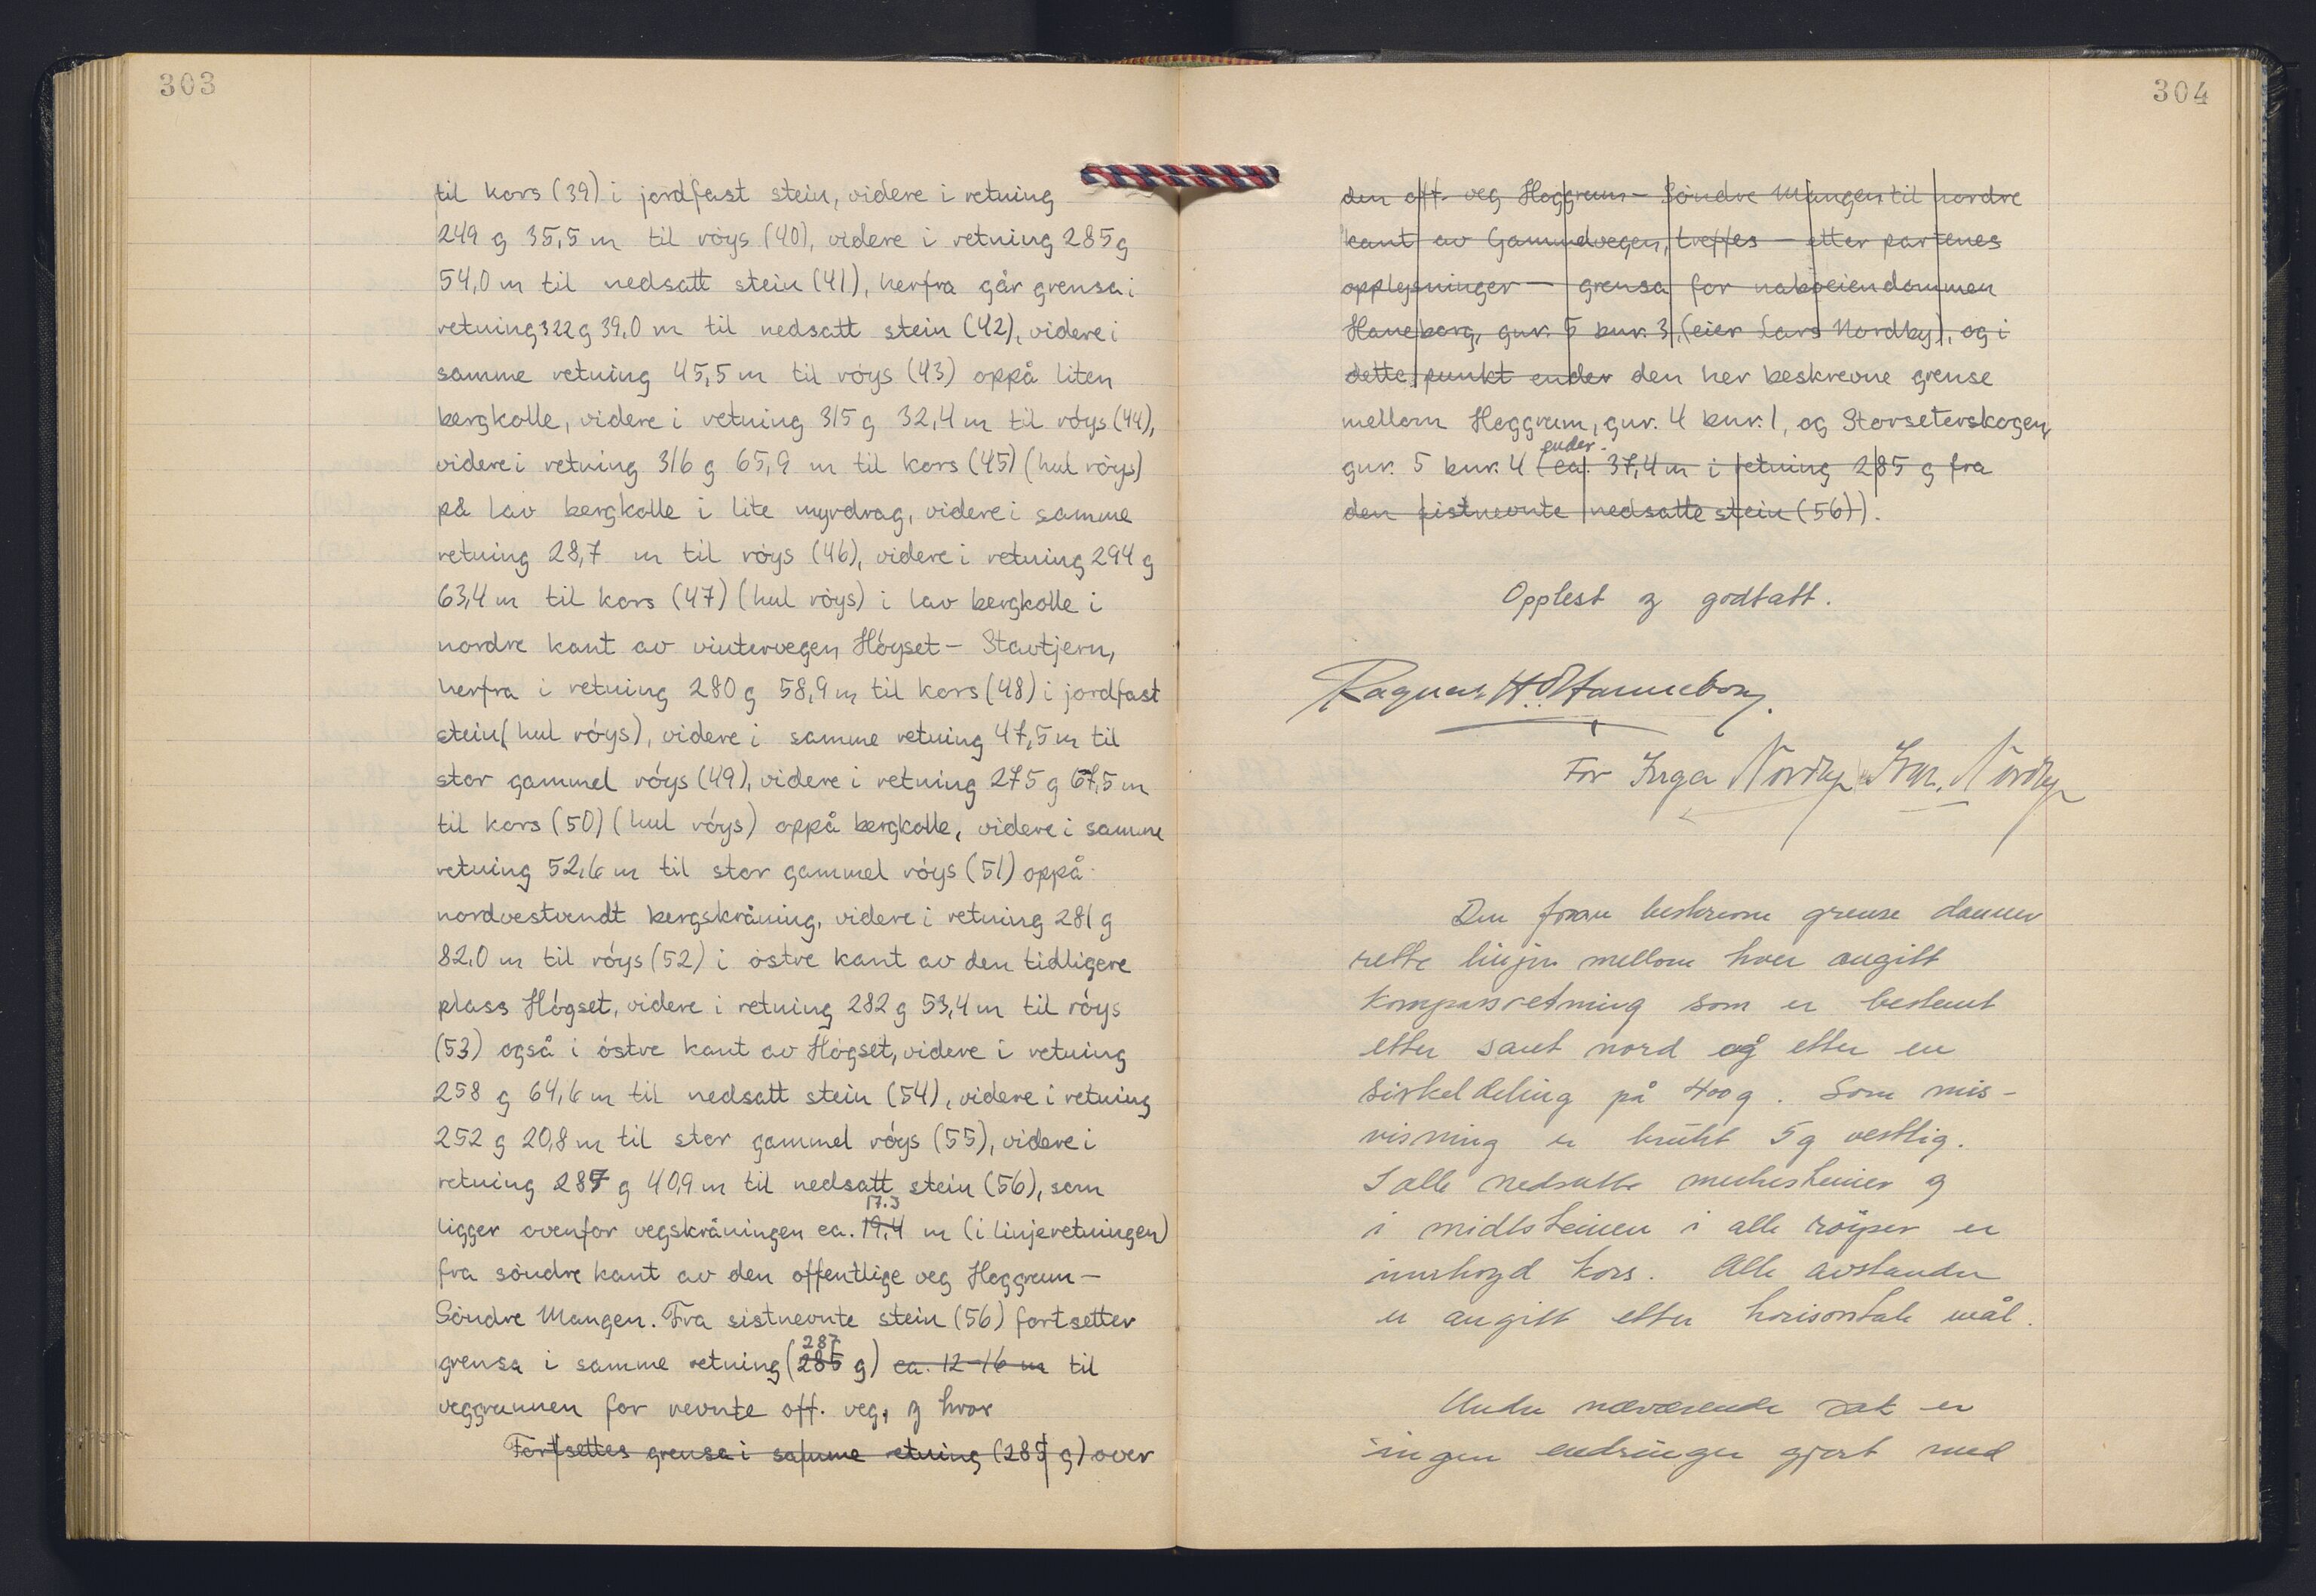 303
til kors (39) i jordfast stein, videre i retning
249 g 35,5 m til röys (40), videre i retning 285 g
54,0 m til nedsatt stein (41), herfra går grensa i
retning 322 g 39,0 m til nedsatt stein (42), videre i
samme retning 45,5 m til röys (43) oppå liten
bergkolle, videre i retning 315 g 32,4 m til röys (44),
videre i retning 316 g 65,9 m til kors (45) (hul röys)
på lav bergkolle i lite myrdrag, videre i samme
retning 28,7 m til röys (46), videre i retning 294 g
63,4 m til kors (47) (hul röys) i lav bergkolle i
nordre kant av vintervegen Höyset - Stavtjern,
herfra i retning 280 g 58,9 m til kors (48) i jordfast
stein (hul röys), videre i samme retning 47,5 m til
stor gammel röys (49), videre i retning 275 g 67,5 m
til kors (50) (hul röys) oppå bergkolle, videre i samme
retning 52,6 m til stor gammel röys (51) oppå
nordvestvendt bergskråning, videre i retning 281 g
82,0 m til röys (52) i östre kant av den tidligere
plass Högset, videre i retning 282 g 53,4 m til röys
(53) også i östre kant av Högset, videre i retning
258 g 64,6 m til nedsatt stein (54), videre i retning
252 g 20,8 m til stor gammel röys (55), videre i
retning 287 g 40,9 m til nedsatt stein (56), som
17.3
ligger ovenfor vegskråningen ca. 19,4 m (i linjeretningen)
fra söndre kant av den offentlige veg Heggrum -
Söndre Mangen. Fra sistnevnte stein (56) fortsetter
287
grensa i samme retning (285 g) ca. 12-16 m til
veggrunnen for nevnte off. veg, og hvor
Fortsettes grensa i samme retning (285 g) over
304
den off. veg Heggrum - Söndre Mangen til nordre
kant av Gammelvegen, treffes - etter partenes
opplysninger - grensa for naboeiendommen
Haneborg, gnr. 5 bnr. 3, (eier Lars Nordby), og i
dette punkt ender den her beskrevne grense
mellom Heggrum, gnr. 4 bnr. 1, og Storseterskogen,
ender.
gnr. 5 bnr. 4 (ca. 37,4 m i retning 285 g fra
den sistnevnte nedsatte stein (56)).
Opplest og godtatt.
Ragnar H. Hanneborg.
For Inga Nordby Ivar Nordby
Den foran beskrevne grense danner
rette linjer mellom hver angitt
kompassretning som er bestemt
etter sant nord og etter en
sirkeldeling på 400 g. Som mis-
visning er brukt 5 g vestlig.
I alle nedsatte merkesteiner og
i midtsteinen i alle röyser er
innhogd kors. Alle avstander
er angitt etter horisontale mål.
Under nærværende sak er
ingen endringer gjort med